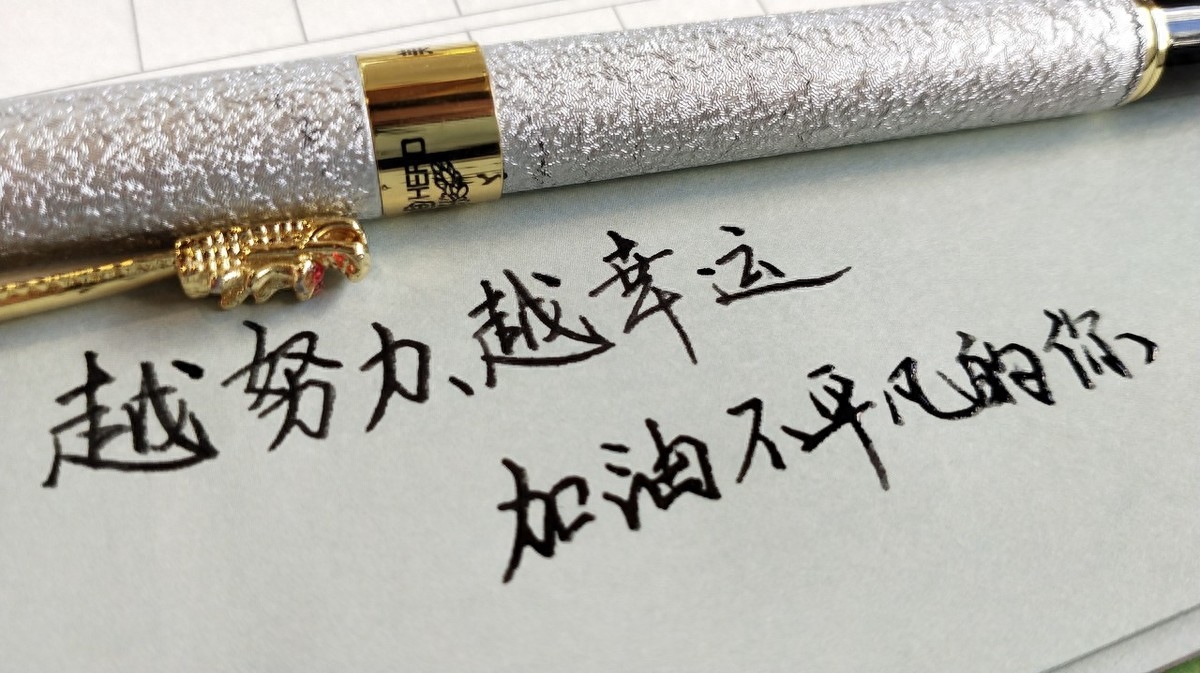 HERO
越努力、越幸运
加油不平凡的你